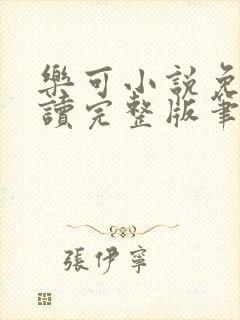 樂可小說免
讀完整版筆
張伊寧